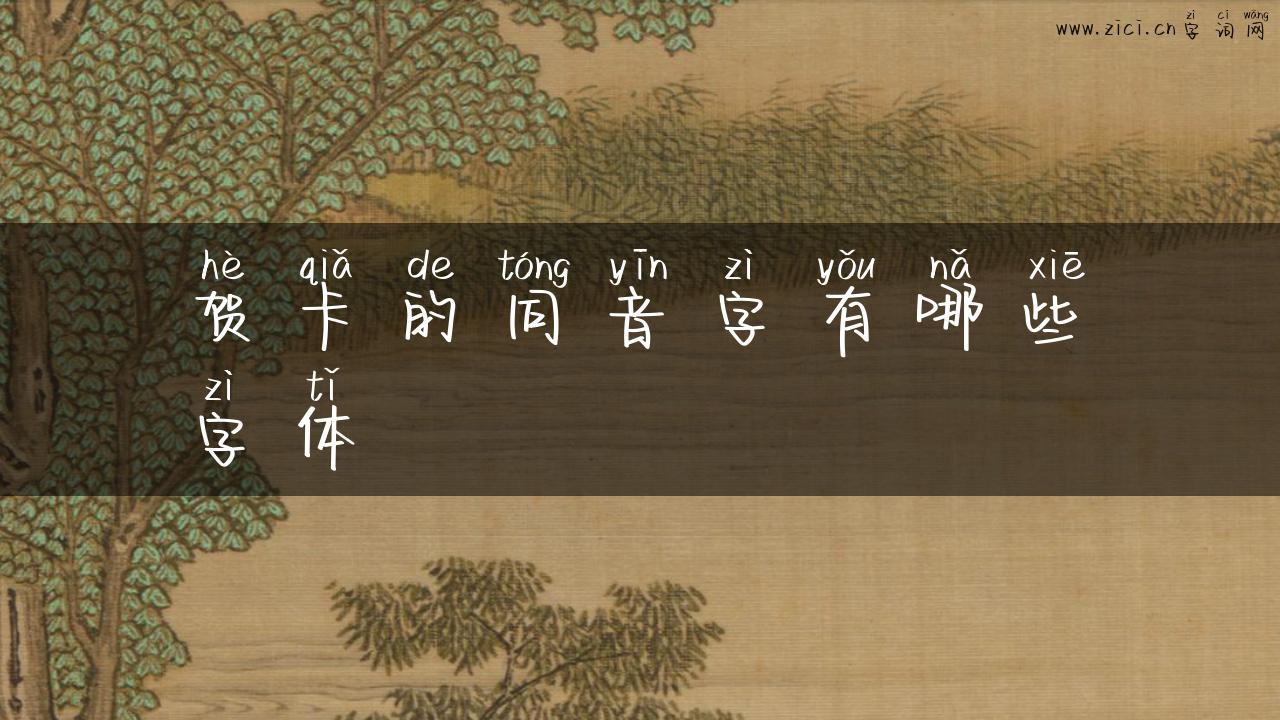 zì cí wǎng
www.zici.cn 字词网
hè qiǎ de tóng yīn zì yǒu nǎ xiē
贺卡的同音字有哪些
zì tǐ
字体